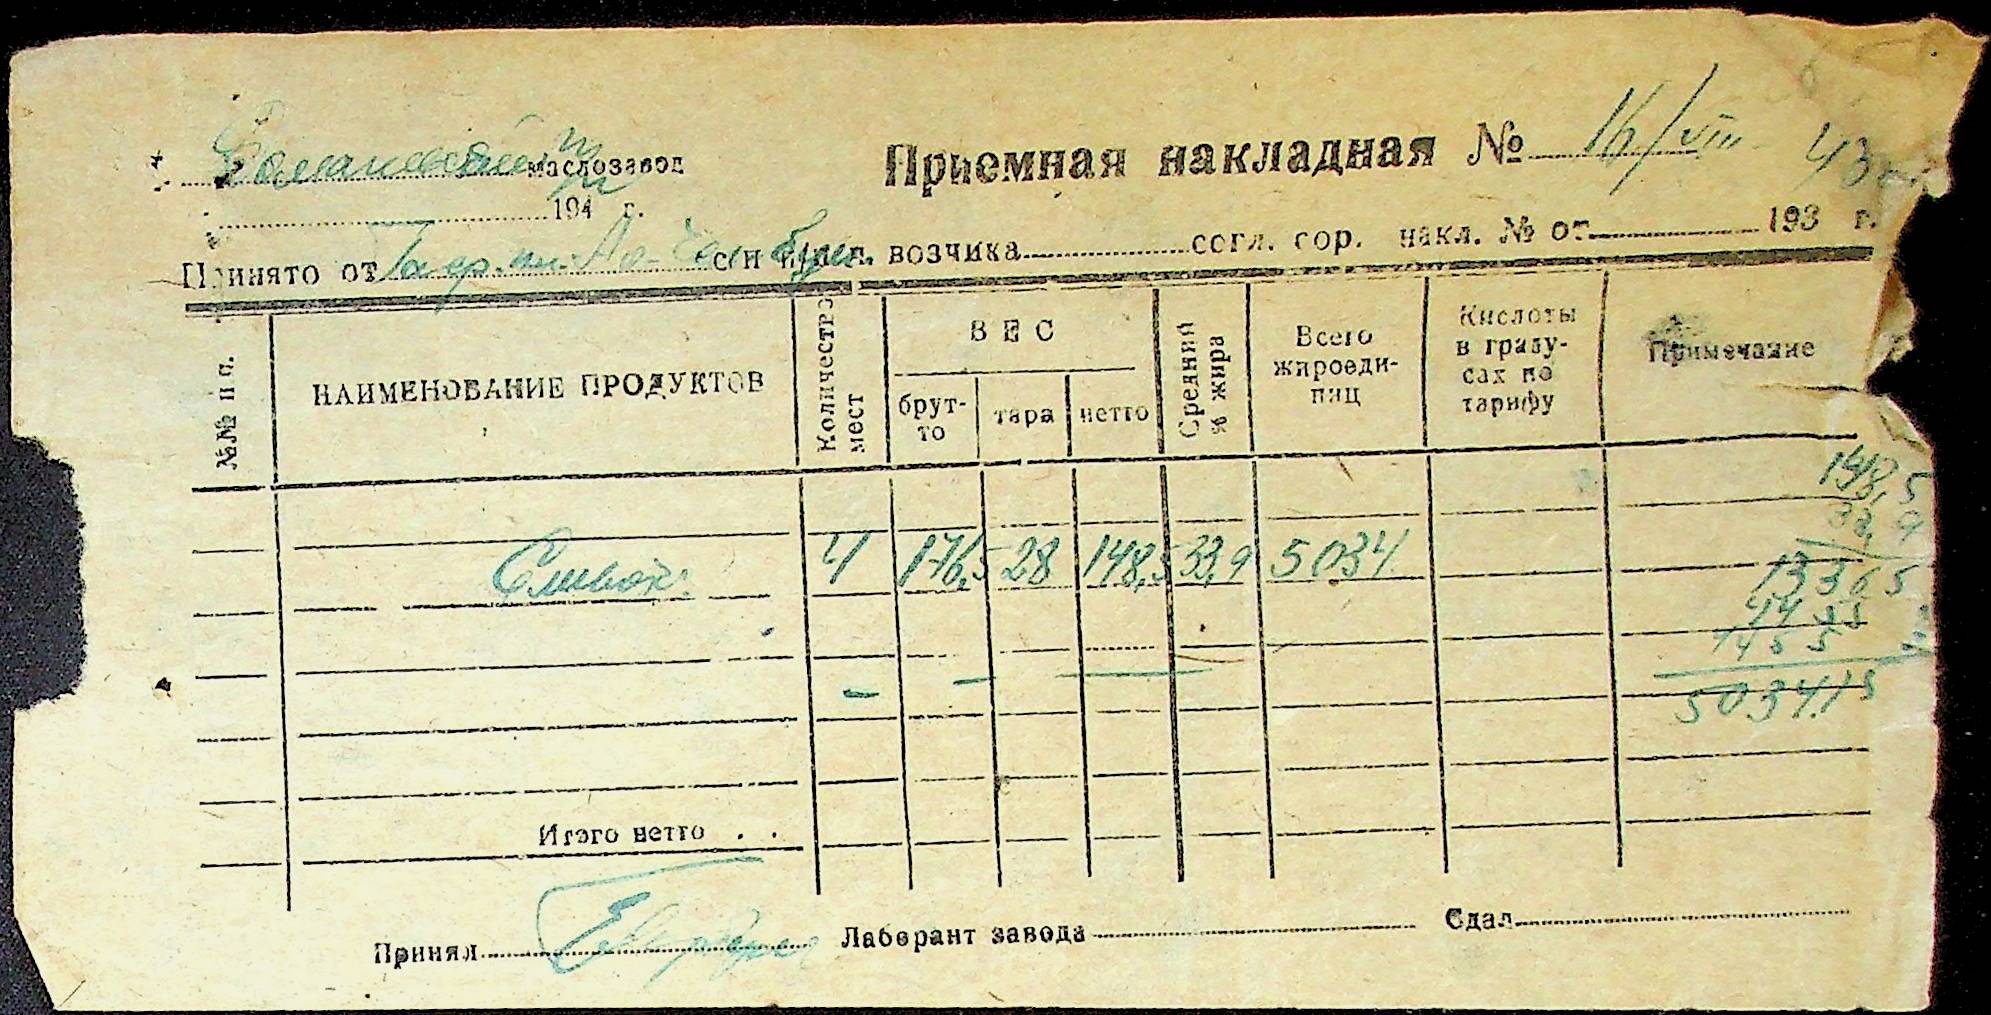 маслозавод
Приемная накладная № 16/VIII 43
194 г.
Принято от возчика согл. сор. накл. № от 193 г.
№№ п п. НАИМЕНОВАНИЕ ПРОДУКТОВ Количество мест ВЕС брут-то тара нетто Средний % жира Всего жироеди-ниц Кислоты в граду-сах по тарифу Примечание
148,5
33,9
Сливок 4 176,5 28 148,5 33,9 5034
13365
4455
4455
5034.15
Итого нетто . .
Принял Лаборант завода Сдал